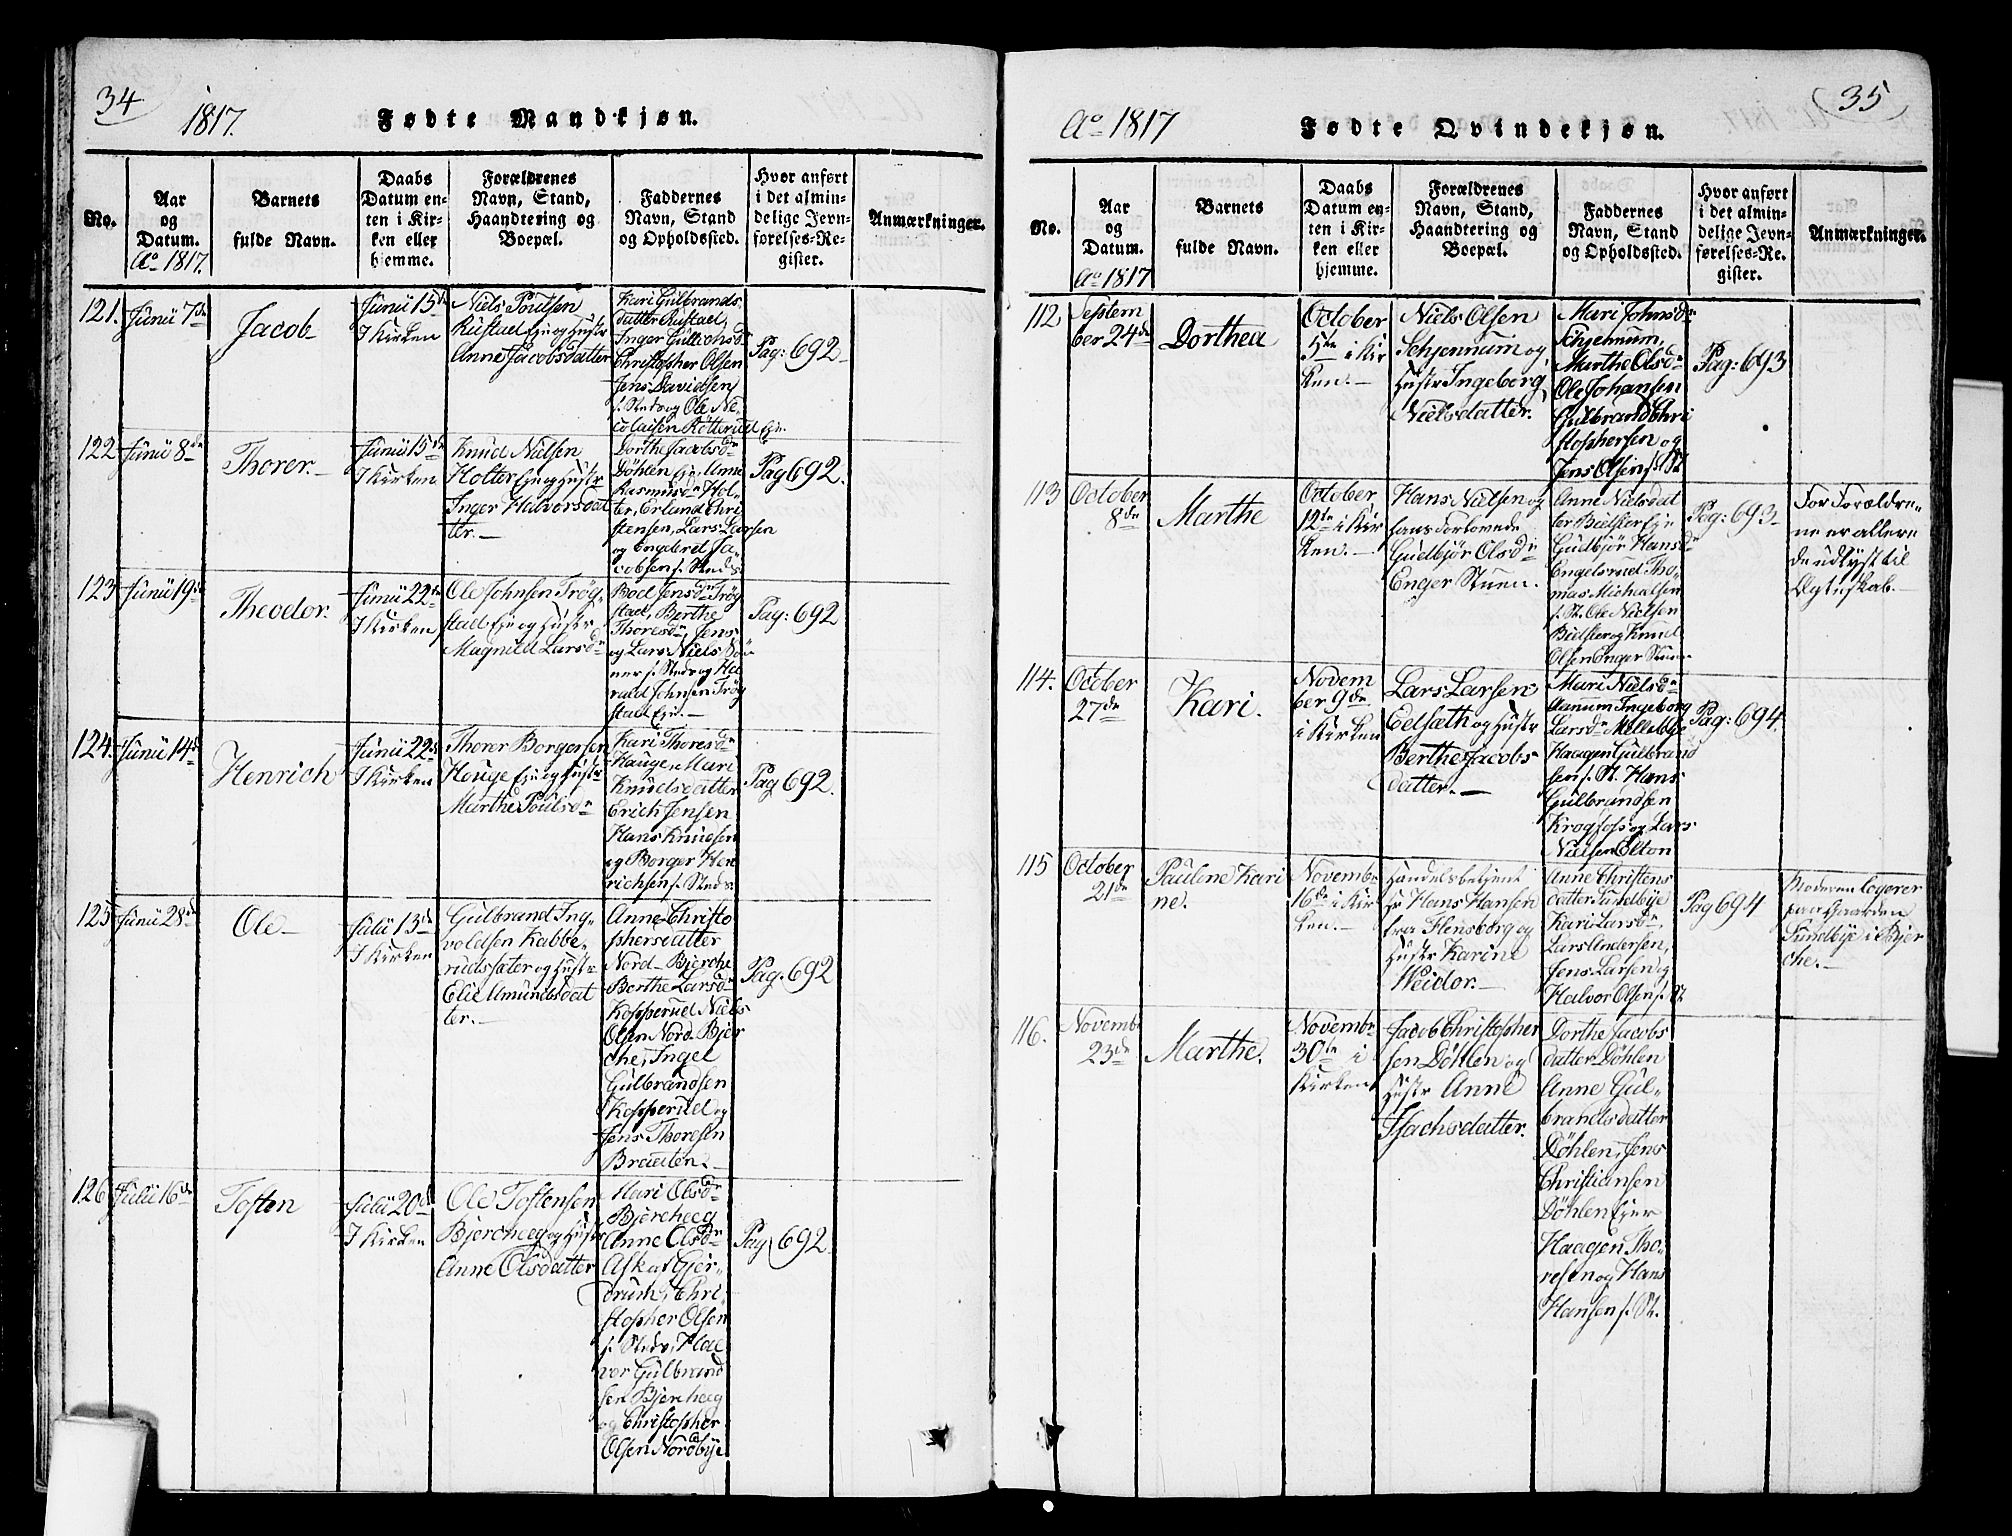 34
1817.
Fødte Mandkjøn.
No.
Aar
og
Datum.
Ao 1817.
Barnets
fulde Navn.
Daabs
Datum en-
ten i Kir-
ken eller
hjemme.
Forældrenes
Navn, Stand,
Haandtering og
Boepæl.
Faddernes
Navn, Stand
og Opholdssted.
Hvor anført
i det almin-
delige Jevn-
førelses-Re-
gister.
Anmærkninger.
121.
Junii 7de
Jacob
Junii 15de
I Kirken
Niels Poulsen
Rustad Eje og Hustr
Anne Jacobsdatter
Kari Gulbrands
datter Rustad,
Inger Gullichsd
Christopher Olsen
Jens Davidsen
f. Sted og Ole Ni-
colaisen Rotterud Eje.
Pag: 692
122
Junii 8de
Thorer.
Junii 15de
I Kirken
Knud Nielsen
Holter Eje og Hustr
Inger Halvorsdat
ter.
Dorthe Jacobsdr
Døhlen Eje, Anne
Rasmusdr Hol-
ter, Erland Chri
stensen, Lars Larsen
og Engebret Ja-
cobsen f. Steds
Pag 692.
123
Junii 19de
Theodor.
Junii 22de
I Kirken
Ole Johnsen Trøg-
stad Eje og Hustr
Magnild Larsdr
Boel Jensdr Trøg
stad, Berthe
Thoresdr, Jens
og Lars Niels Søn
ner f. Sted og Ha
rald Johnsen Trøg
stad Eje.
Pag: 692
124.
Junii 14de
Henrich
Junii 22de
I Kirken
Thorer Borgersen
Houge Eje og Hustr
Marthe Poulsdr
Kari Thoresdr
Hauge, Mari
Knudsdatter
Erich Jensen
Hans Knudsen
og Borger Hen
richsen f. Steds
Pag 692.
125
Junii 28de
Ole
Julii 13de
I Kirken
Gulbrand Ing-
voldsen Kabbe-
rudsater og Hustr
Elie Amundsdat
ter.
Anne Christo
phersdatter
Nord-Bjerche
Berthe Larsdr
Kopperud Niels
Olsen Nord-Bjer
che, Ingel
Gulbrandsen
Kopperud og
Jens Thoresen
Braaten.
Pag. 692
126
Julii 16de
Tosten
Julii 20de
I Kirken
Ole Tostensen
Bjercheeg og Hustr
Anne Olsdatter
Mari Olsdr
Bjercheeg
Anne Olsdr
Ask af Gjer-
drum, Chri
stopher Olsen
f. Sted, Hal
vor Gulbrand
sen Bjercheeg
og Christopher
Olsen Nordbye
Pag 692
35
Ao 1817
Fødte Qvindekjøn.
No.
Aar
og
Datum.
Ao 1817
Barnets
fulde Navn.
Daabs
Datum en-
ten i Kir-
ken eller
hjemme.
Forældrenes
Navn, Stand,
Haandtering og
Boepæl.
Faddernes
Navn, Stand
og Opholdssted.
Hvor anført
i det almin-
delige Jevn-
førelses-Re-
gister.
Anmærkninger.
112
Septem
ber 24de
Dorthea
October
5te i Kir
ken.
Niels Olsen
Schjennum og
Hustr Ingeborg
Nielsdatter.
Mari Johnsdr
Schjennum,
Marthe Olsdr
Ole Johansen
Gulbrand Chri
stophersen og
Jens Olsen f. St.
Pag: 693
113
October
8de
Marthe
October
12te i Kir
ken.
Hans Nielsen og
hans Forlovede
Gudbjør Olsdr
Enger Stuen.
Anne Nielsdat
ter Bielster Eje
Gudbjør Hansdr
Engelsrud Tho-
mas Michealsen
f. St. Ole Nielsen
Bielster og Knud
Olsen Enger Stuen
Pag: 693
For Forældre-
ne er allere
de udlyst til
Ægteskab.
114.
October
27de
Kari.
Novem
ber 9de
i Kirken
Lars Larsen
Eelsæth og Hustr
Berthe Jacobs
datter.
Mari Nielsdr
Aanum Ingeborg
Larsdr Mellebye
Haagen Gulbrand
sen f. St. Hans
Gulbrandsen
Krogfoss og Lars
Nielsen Elton
Pag: 694.
115
October
21de
Paulene Kari
ne.
Novembr
16de i Kir
ken.
Handelsbetjent
Hr Hans Hansen
fra Flensborg og
Hustr Karine
Weidor.
Anne Christens
datter Sundbye
Kari Larsdr,
Lars Andersen,
Jens Larsen og
Halvor Olsen f. St
Pag 694
Moderen logerer
paa Gaarden
Sundbye i Bjer
che.
116.
Novembr
23de
Marthe.
Novembr
30te i
Kirken
Jacob Christopher
sen Døhlen og
Hustr Anne
Isachsdatter.
Dorthe Jacobs
datter Døhlen
Anne Gul-
brandsdatter
Døhlen, Jens
Christiansen
Døhlen Ejer
Haagen Tho-
resen og Hans
Hansen f. St.